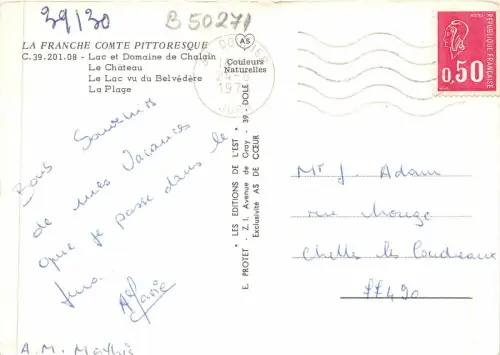 39/30
B 50271
LA FRANCHE COMTE PITTORESQUE
C. 39.201.08 - Lac et Domaine de Chalain
Le Château
Le Lac vu du Belvédère
La Plage
AS
Couleurs
Naturelles
JURA
REPUBLIQUE FRANÇAISE
0,50
Bons Souvenirs
de mes Vacances
que je passe dans le
Jura
E. PROTET - Z. I. Avenue de Gray - 39 - DOLE
* LES EDITIONS DE L'EST *
Exclusivité AS DE CŒUR
Mr J. Adam
rue Monge
Chelles les Coudreaux
77490
A.M. Mathis